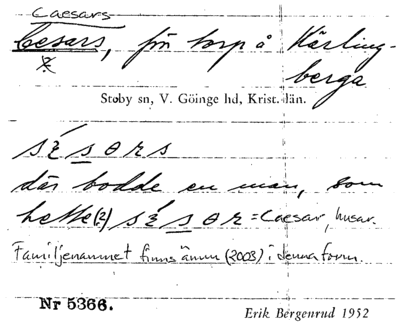 Caesars
Cesars, frn torp å Kärling-
berga
Stoby sn, V. Göinge hd, Krist. län.
sésərs
där bodde en man, som
hette (2) sésər = Caesar, husar.
Familjenamnet finns ännu (2003) i denna form.
Nr 5366.
Erik Bergenrud 1952